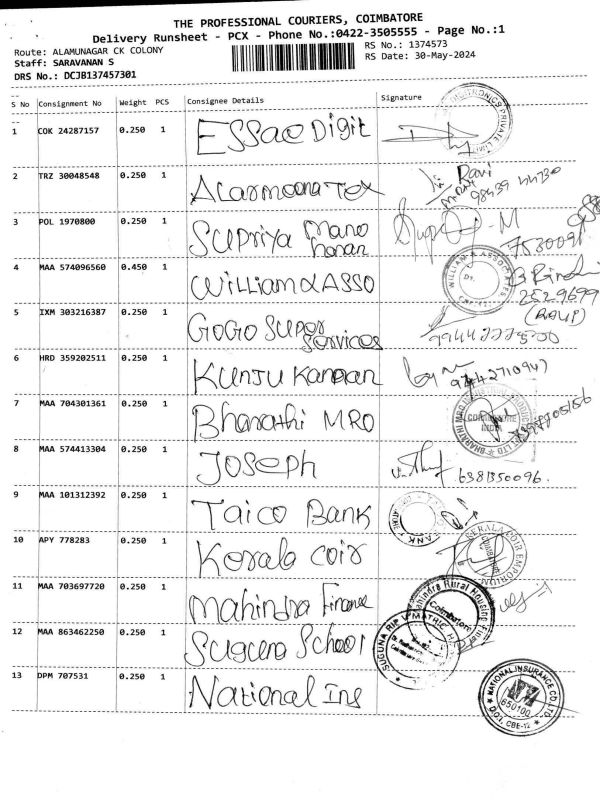 THE PROFESSIONAL COURIERS, COIMBATORE
Delivery Runsheet - PCX - Phone No.:0422-3505555 - Page No.:1
Route: ALAMUNAGAR CK COLONY
RS No.: 1374573
Staff: SARAVANAN S
RS Date: 30-May-2024
DRS No.: DCJB137457301
S No Consignment No Weight PCS Consignee Details Signature
1 COK 24287157 0.250 1 ESSae Digit
2 TRZ 30048548 0.250 1 Alarmoona Tex Ravi
98439 44730
3 POL 1970800 0.250 1 Supriya Mano
haran
4 MAA 574096560 0.450 1 William & ASSO
2529699
5 IXM 303216387 0.250 1 GoGo Super
Services
6 HRD 359202511 0.250 1 Kunju Kannan 9442710947
7 MAA 704301361 0.250 1 Bharathi MRO
8 MAA 574413304 0.250 1 Joseph 6381350096.
9 MAA 101312392 0.250 1 Taico Bank
10 APY 778283 0.250 1 Kerala coir KERALA COIR EMPORIUM
11 MAA 703697720 0.250 1 Mahindra Finance Mahindra Rural Housing Finance
Coimbatore
12 MAA 863462250 0.250 1 Suguna School
13 DPM 707531 0.250 1 National Ins NATIONAL INSURANCE CO. LTD.
650100
CBE-12